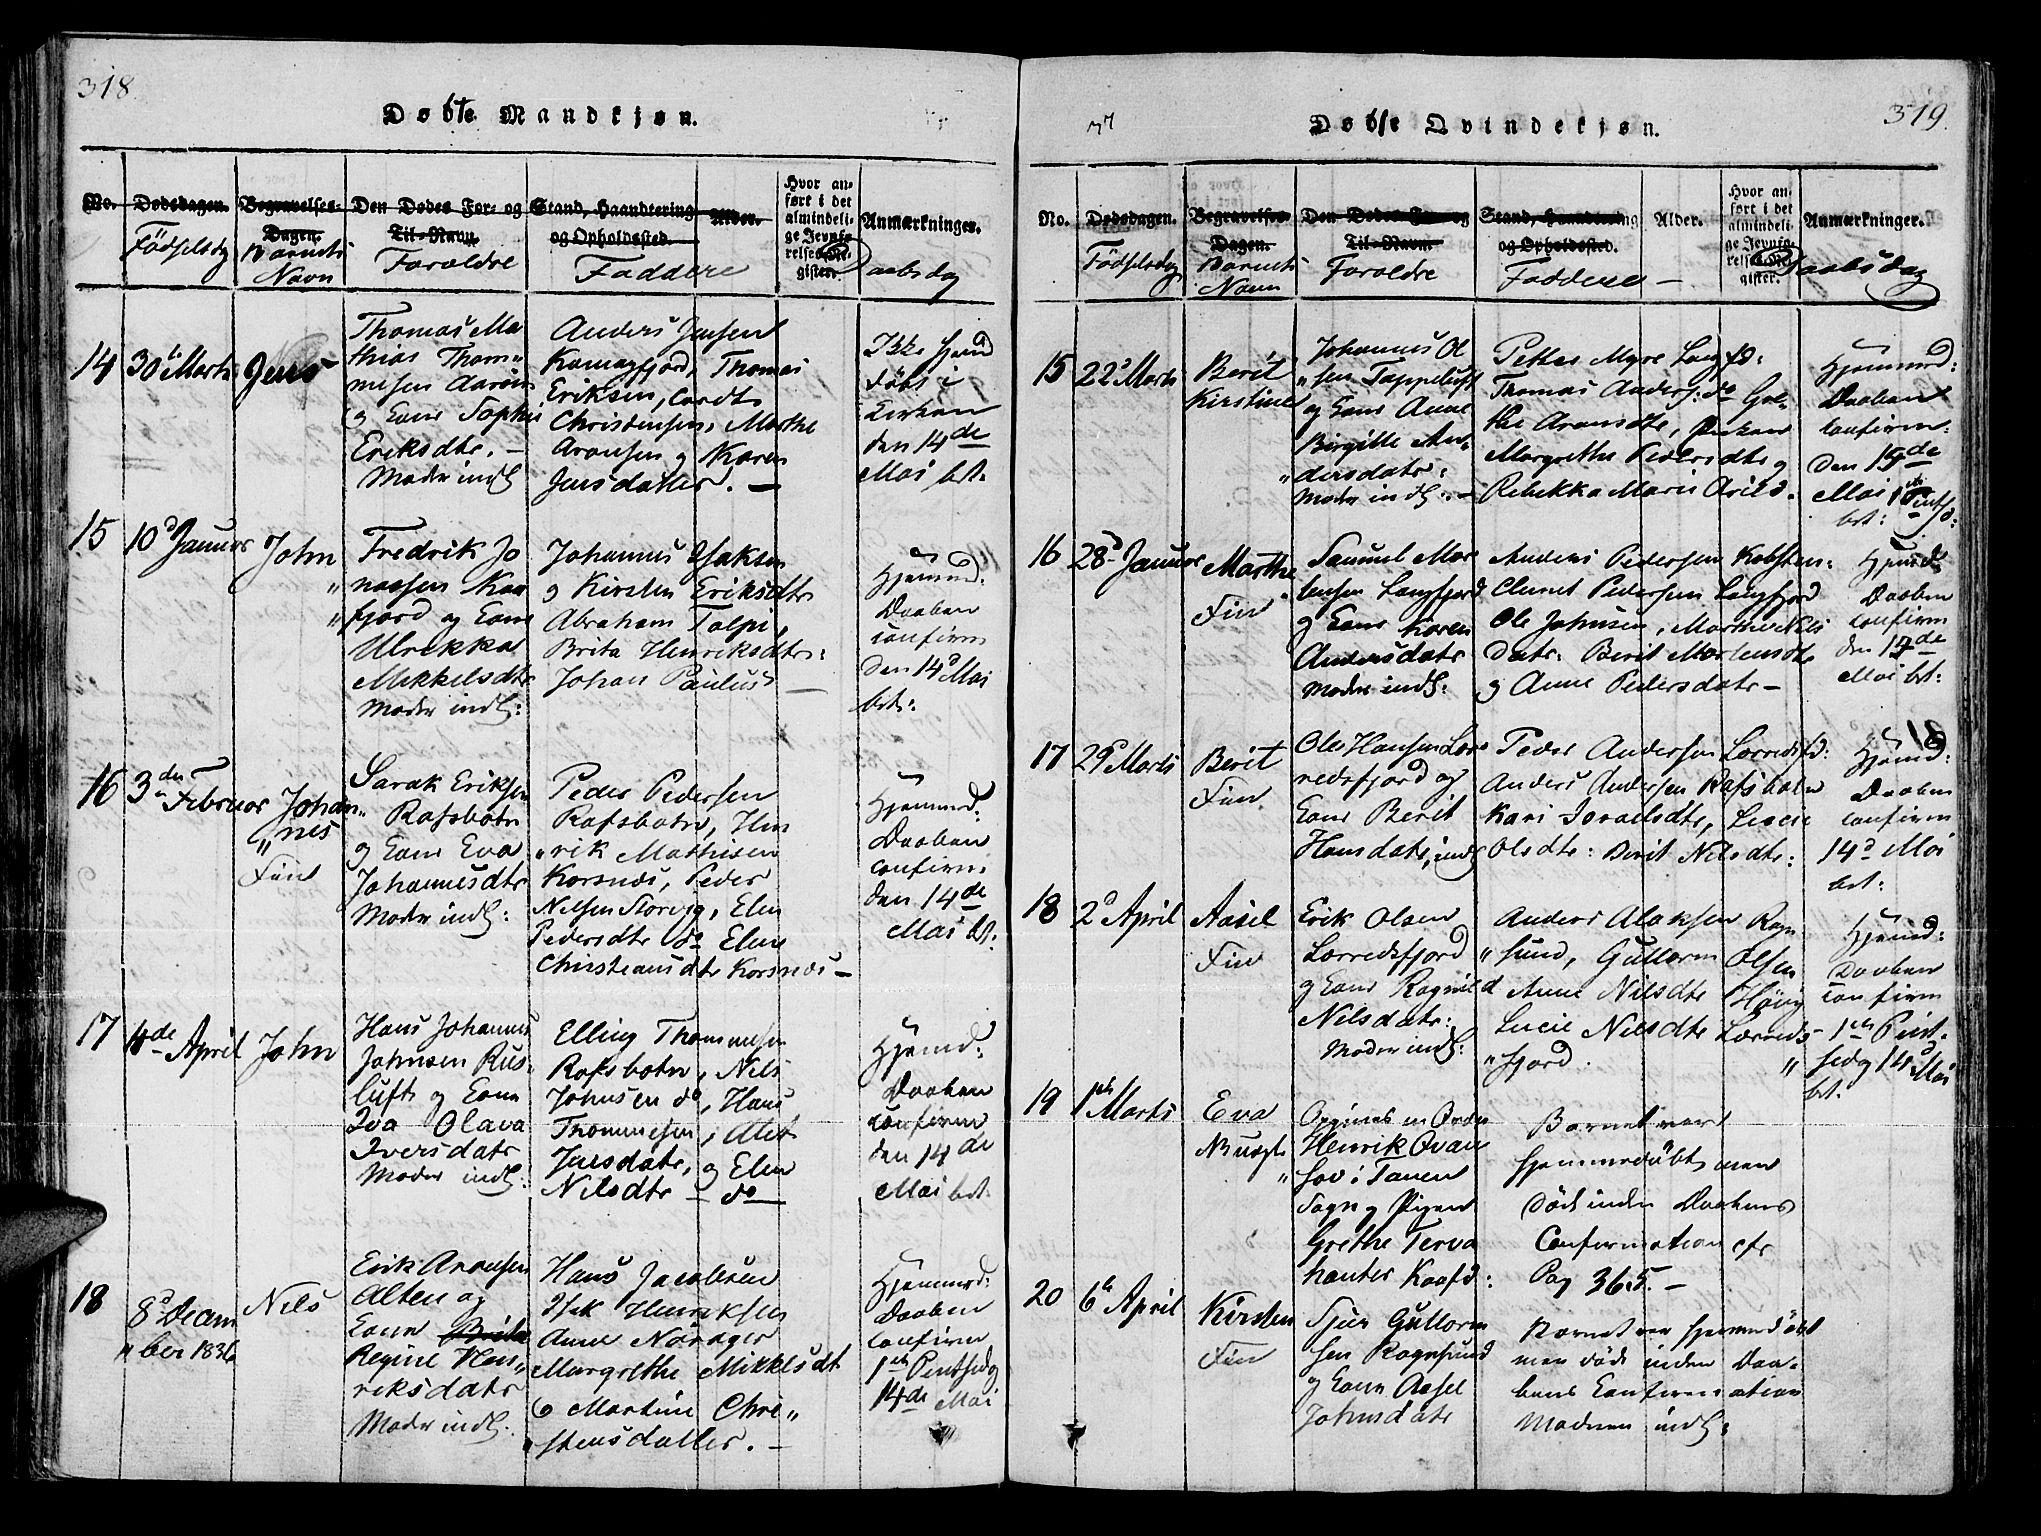 318.
Døbte Mandkjøn.
No.
Dødsdagen.
Födselsdg
Begravelses-
Dagen.
Barnets
Navn
Den Dødes For- og
Til-Navn.
Foroldre
Stand, Haandtering
og Opholdssted.
Faddere
Alder.
Hvor an-
ført i det
almindeli-
ge Jevnfø-
relses-Re-
gister.
Anmærkninger.
Daabsdg
14
30te Marts
Jens
Thomas Ma
thias Thom„
mesen Aarön
og Kone Sophie
Eriksdtr. –
Modr indl
Anders Jensen
Kamagfjord, Thomas
Eriksen, Cordt
Christensen, Marthe
Aronsen og Karen
Jensdatter. –
Ikke hjemd
döbt i
Kirken
den 14de
Mai bt.
15
10d Januar
John
Fredrik Jo
„nassen Kaa
„fjord og Kone
Ulrikka
Mikkelsdtr
Modr indl:
Johannes Isaksen
og Kirsten Eriksdtr
Abraham Talpi,
Brita Henriksdtr:
Johan Paulus –
Hjemmd:
Daaben
confirm
den 14d Mai
bt:
16
3den Februar
Johan„
„nes
Fin
Sarak Eriksen
Rafsbotn
og Kone Eva
Johannesdtr
Modr indl:
Peder Pedersen
Rafsbotn, Hen
„rik Mathisen
Korsnes, Peder
Nilsen Storvig, Elen
Pedersdtr do Elen
Christiansdtr Korsnes –
Hjemmd:
Daaben
confirm:
den 14de
Mai bt.
17
4de April
John
Hans Johannes
Johnsen Rus„
luft og Kone
Iva Olava
Iversdatr
Modr indl:
Elling Thommesen
Rafsbotn, Nils
Johnsen do, Hans
Thommesen, Alet
Jensdatr, og Elen
Nilsdtr – do –
Hjemd:
Daaben
confirm
den 14de
Mai bt.
18
8d Decem
„ber 1836
Nils
Erik Aronsen
Alten og
Kone
Regine Hen„
riksdatr
Modr indl.
Hans Jacobsen
Isak Henriksen
Anne
Margrethe Mikkelsdt
og Martine Chri„
„stensdatter. –
Hjemmd:
Daaben
confirm
1ste Pintsedg
14de Mai
319.
Døbte Qvindekjøn.
No.
Dødsdagen.
Födselsdg
Begravelses-
Dagen.
Barnets
Navn
Den Dødes For- og
Til-Navn.
Foroldre
Stand, Haandtering
og Opholdssted.
Faddere –
Alder.
Hvor an-
ført i det
almindeli-
ge Jevnfø-
relses-Re-
gister.
Anmærkninger.
Daabsdag
15
22d Marts
Berit
Kirstine
Johannes Ol
„sen Tappeluft
og Kone Anne
Birgitte An„
„dersdatr:
Modr indl: –
Petter Myre Langfd:
Thomas Anders: do Gre„
the Aronsdtr, Piken
Margrethe Pedersdtr og
Rebekka Marie Arild.
Hjemmd:
Daaben
confirm:
den 14de
Mai 1ste Pintsd:
bt:
16
28d Januar
Marthe
Fin
Samuel Mor
tensen Langfjord
og Kone Karen
Andersdatr
Modr indl:
Anders Pedersen Kobsten:
Clemet Pedersen Langfjord
Ole Johnsen, Marthe Nils
datr: Berit Mortensdtr
og Anne Pedersdatr –
Hjemd:
Daaben
confirm
den 14de
Mai bt:
17
29d Marts
Berit
Fin
Ole Hansen Lær
redsfjord og
Kone Berit
Hansdatr, indl
Peder Andersen Lerredsfd:
Anders Andersen Rafsbotn
Kari Israelsdtr, Lucie
Olsdtr: Berit Nilsdtr:
18
Hjemd:
Daaben
confirm
14d Mai
bt:
18
2d April
Aasel
Fin
Erik Olsen
Lærredsfjord
og Kone Ragnild
Nilsdatr:
Modr indl:
Anders Alaksen Rogn
„sund, Guttorm Olsen
Anne Nilsdtr Hønsy
Lucie Nilsdtr Lærreds„
„fjord.
Hjemd:
Daaben
confirm
1ste Pint„
sedg 14d Mai
bt.
19
1ste Marts
Eva
Opgives en Qvæn
Henrik Qvæn
hov i Tanen
Sogn og Pigen
Grethe Terva
hanter Kaafd:
Barnet var
hjemmedöbt men
död inden Daabens
Confirmation cfr
Pag 365. –
20
6te April
Kirsten
Fin
Sjur Guttorm
sen Rognsund
og Kone Aasel
Johnsdatr
Barnet var hjemmedöbt
men död inden Daa„
bens Confirmation
Modren indl: